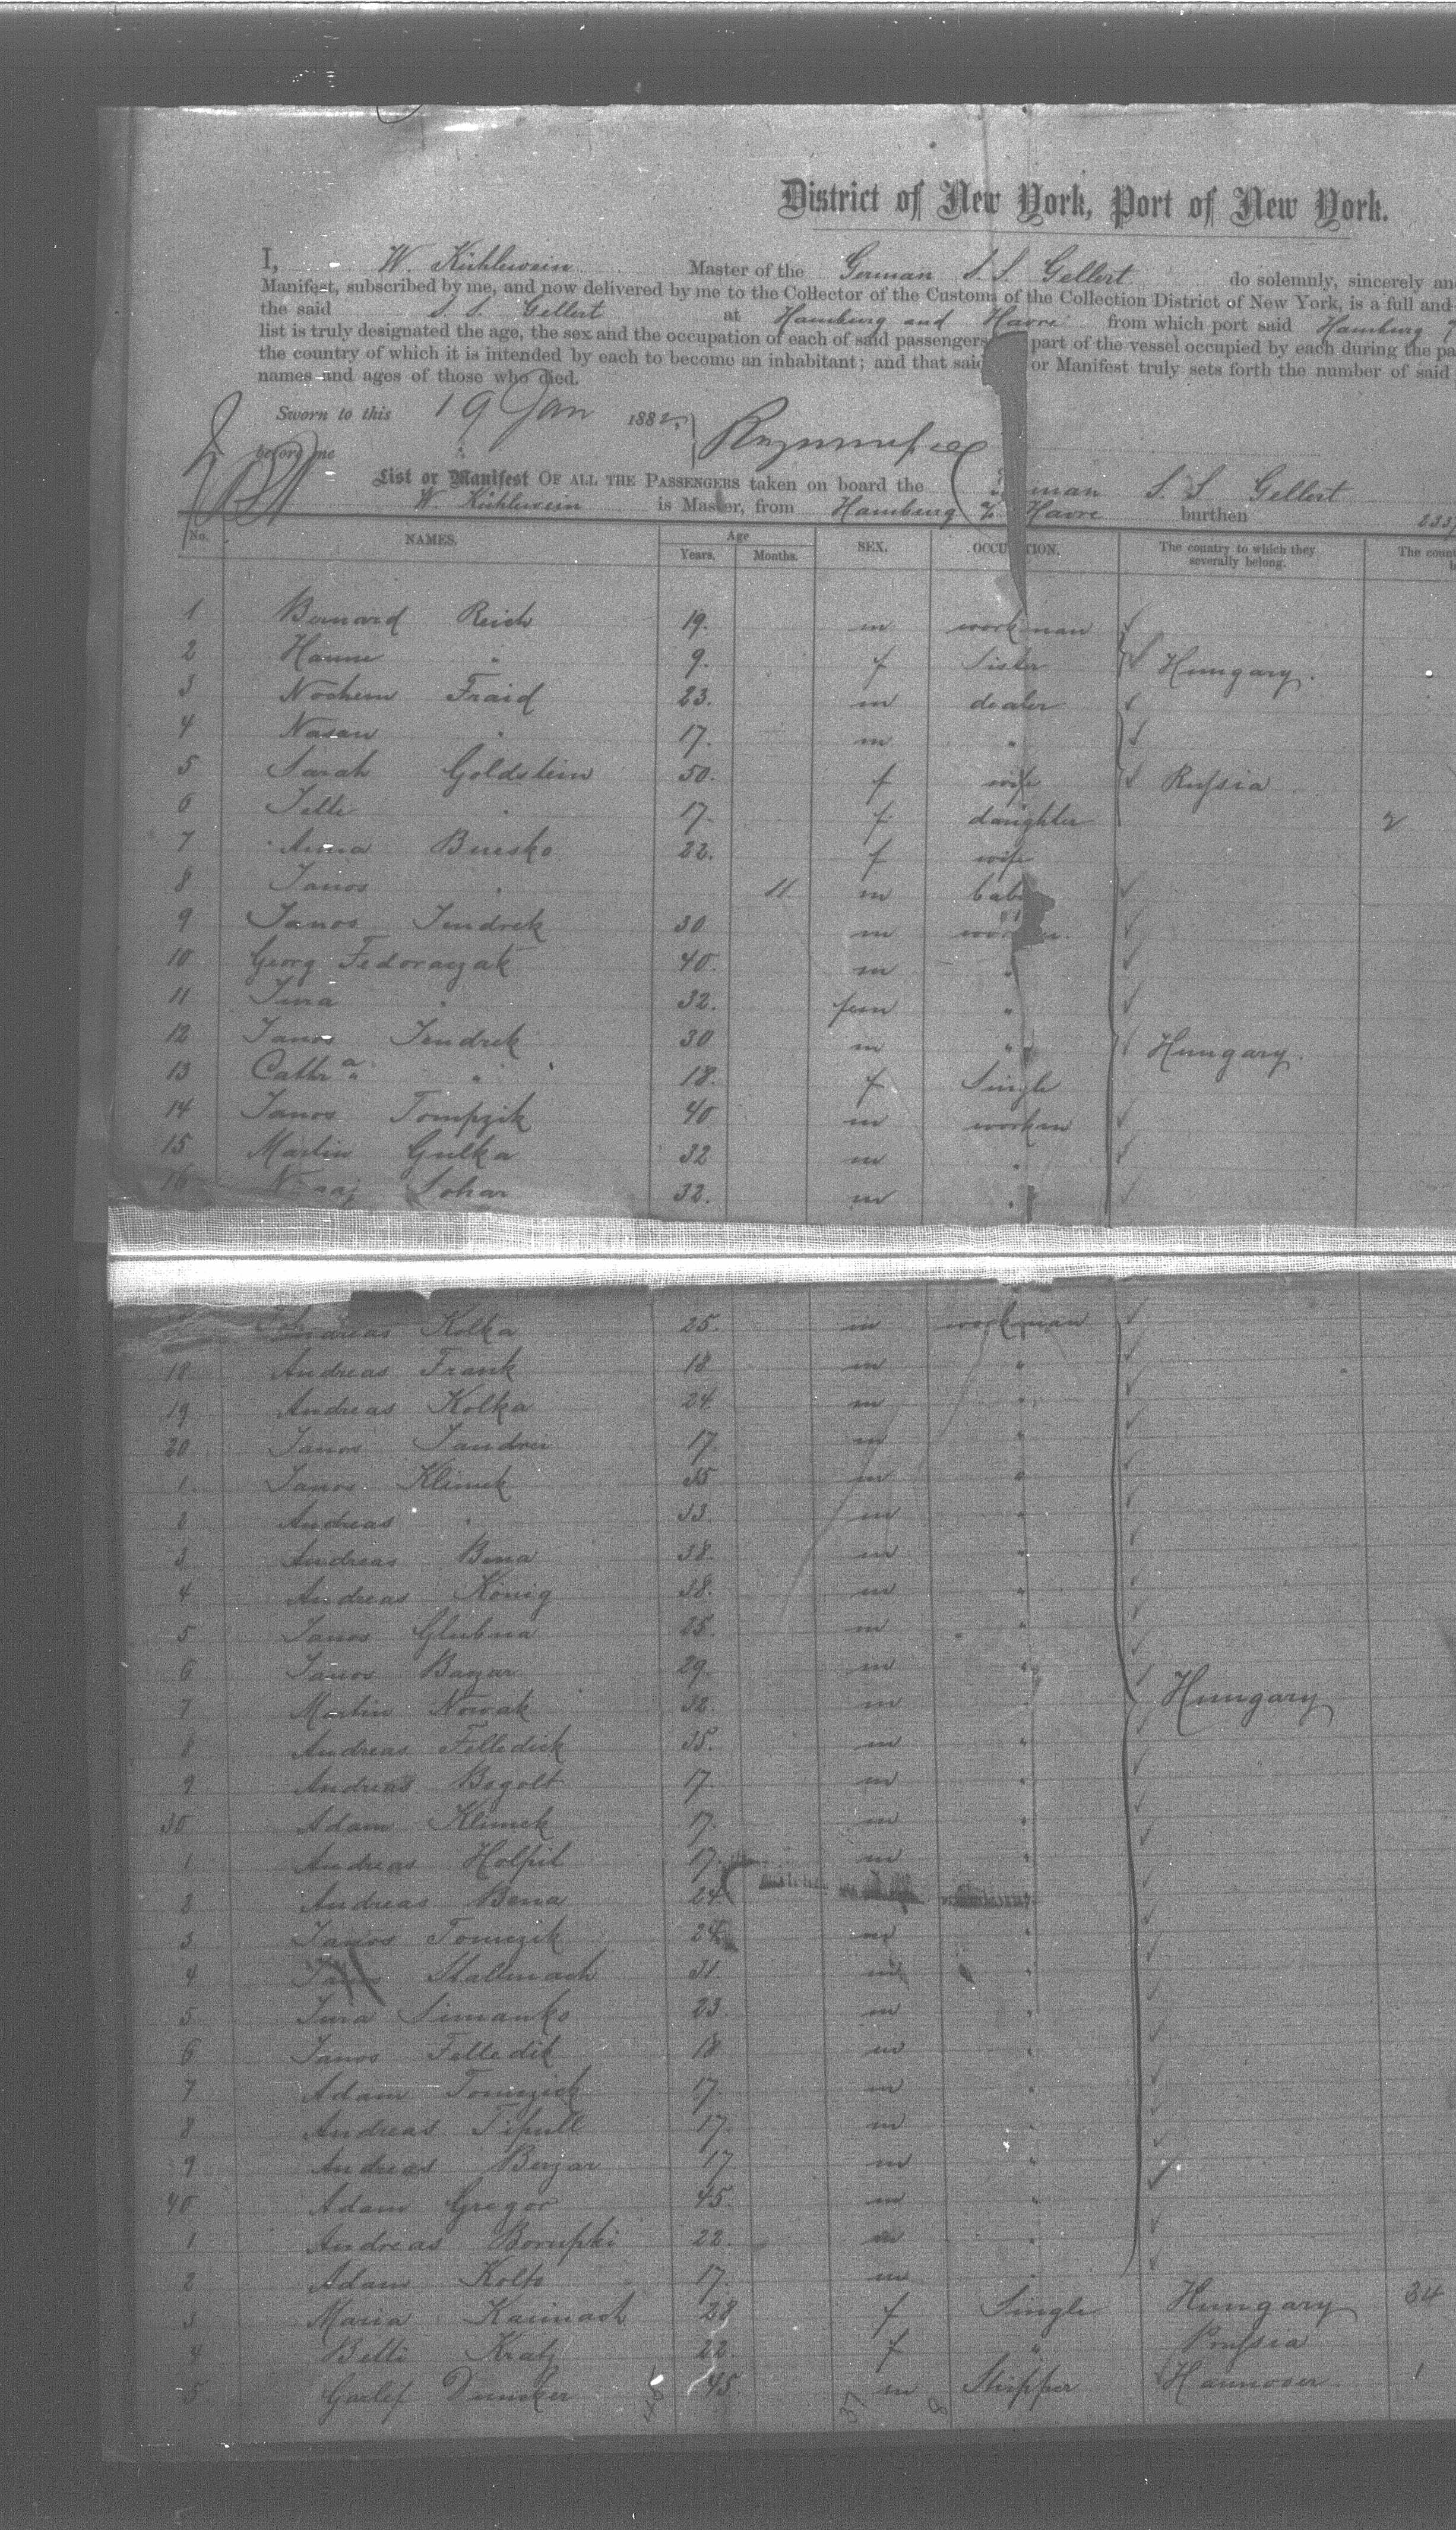 District of New York, Port of New York.
I, W. Kühlewein Master of the German S.S. Gellert do solemnly, sincerely and
Manifest, subscribed by me, and now delivered by me to the Collector of the Customs of the Collection District of New York, is a full and
the said S.S. Gellert at Hamburg and Havre from which port said Hamburg
list is truly designated the age, the sex and the occupation of each of said passengers part of the vessel occupied by each during the pa
the country of which it is intended by each to become an inhabitant; and that said or Manifest truly sets forth the number of said
names and ages of those who died.
Sworn to this 19 Jan 1882,
before me
List or Manifest OF ALL THE PASSENGERS taken on board the man S.S Gellert
W. Kühlewein is Master, from Hamburg & Havre burthen 233,
No. NAMES. Age Years. Months. SEX. OCCUPATION. The country to which they severally belong. The count
1 Bernard Reich 19. m workman
2 Hanne " 9. f Sister Hungary.
3 Nochem Fraid 23. m dealer
4 Nasan " 17. m "
5 Sarah Goldstein 50. f wife Russia
6 Telli " 17. f daughter 2
7 Anna Buesko 22. f wife
8 Janos " 11 m baby
9 Janos Jendrek 30 m
10 Georg Fedoraczak 40. m "
11 Jura " 32. fem "
12 Janos Jendrek 30 m " Hungary.
13 Cathra " 18. f Single
14 Janos Tomszik 40 m workm
15 Martin Gulka 32 m "
16 Lohar 32. m "
Andreas Kolka 25. m workman
18 Andreas Frank 18 m "
19 Andreas Kolka 24 m "
20 Janos Jandrei 17 m "
1. Janos Klimek 35 m "
2 Andreas " 33. m "
3 Andreas Bena 38. m "
4 Andreas König 38. m "
5 Janos Glubna 25. m "
6 Janos Bazar 29. m "
7 Martin Nowak 32. m " Hungary
8 Andreas Felledick 35. m "
9 Andreas Bogolt 17. m "
30 Adam Klimek 17. m "
1 Andreas Holpit 17. m "
2 Andreas Bena 24
3 Janos Tomszik 24 m "
4 Stallmach 31. m "
5 Jura Simanko 23. m "
6 Janos Felledik 18 m "
7 Adam Tomszick 17. m "
8 Andreas Tipull 17. m "
9 Andreas Berzar 17 m "
40 Adam Gregor 45. m "
1 Andreas Borusski 22. m "
2 Adam Kolto 17. m "
3 Maria Karinach 28 f Single Hungary 34
4 Betti Kratz 22. f " Prussia
5. Garlef Duncker 45. m Shipper Hannover. 1
37 8